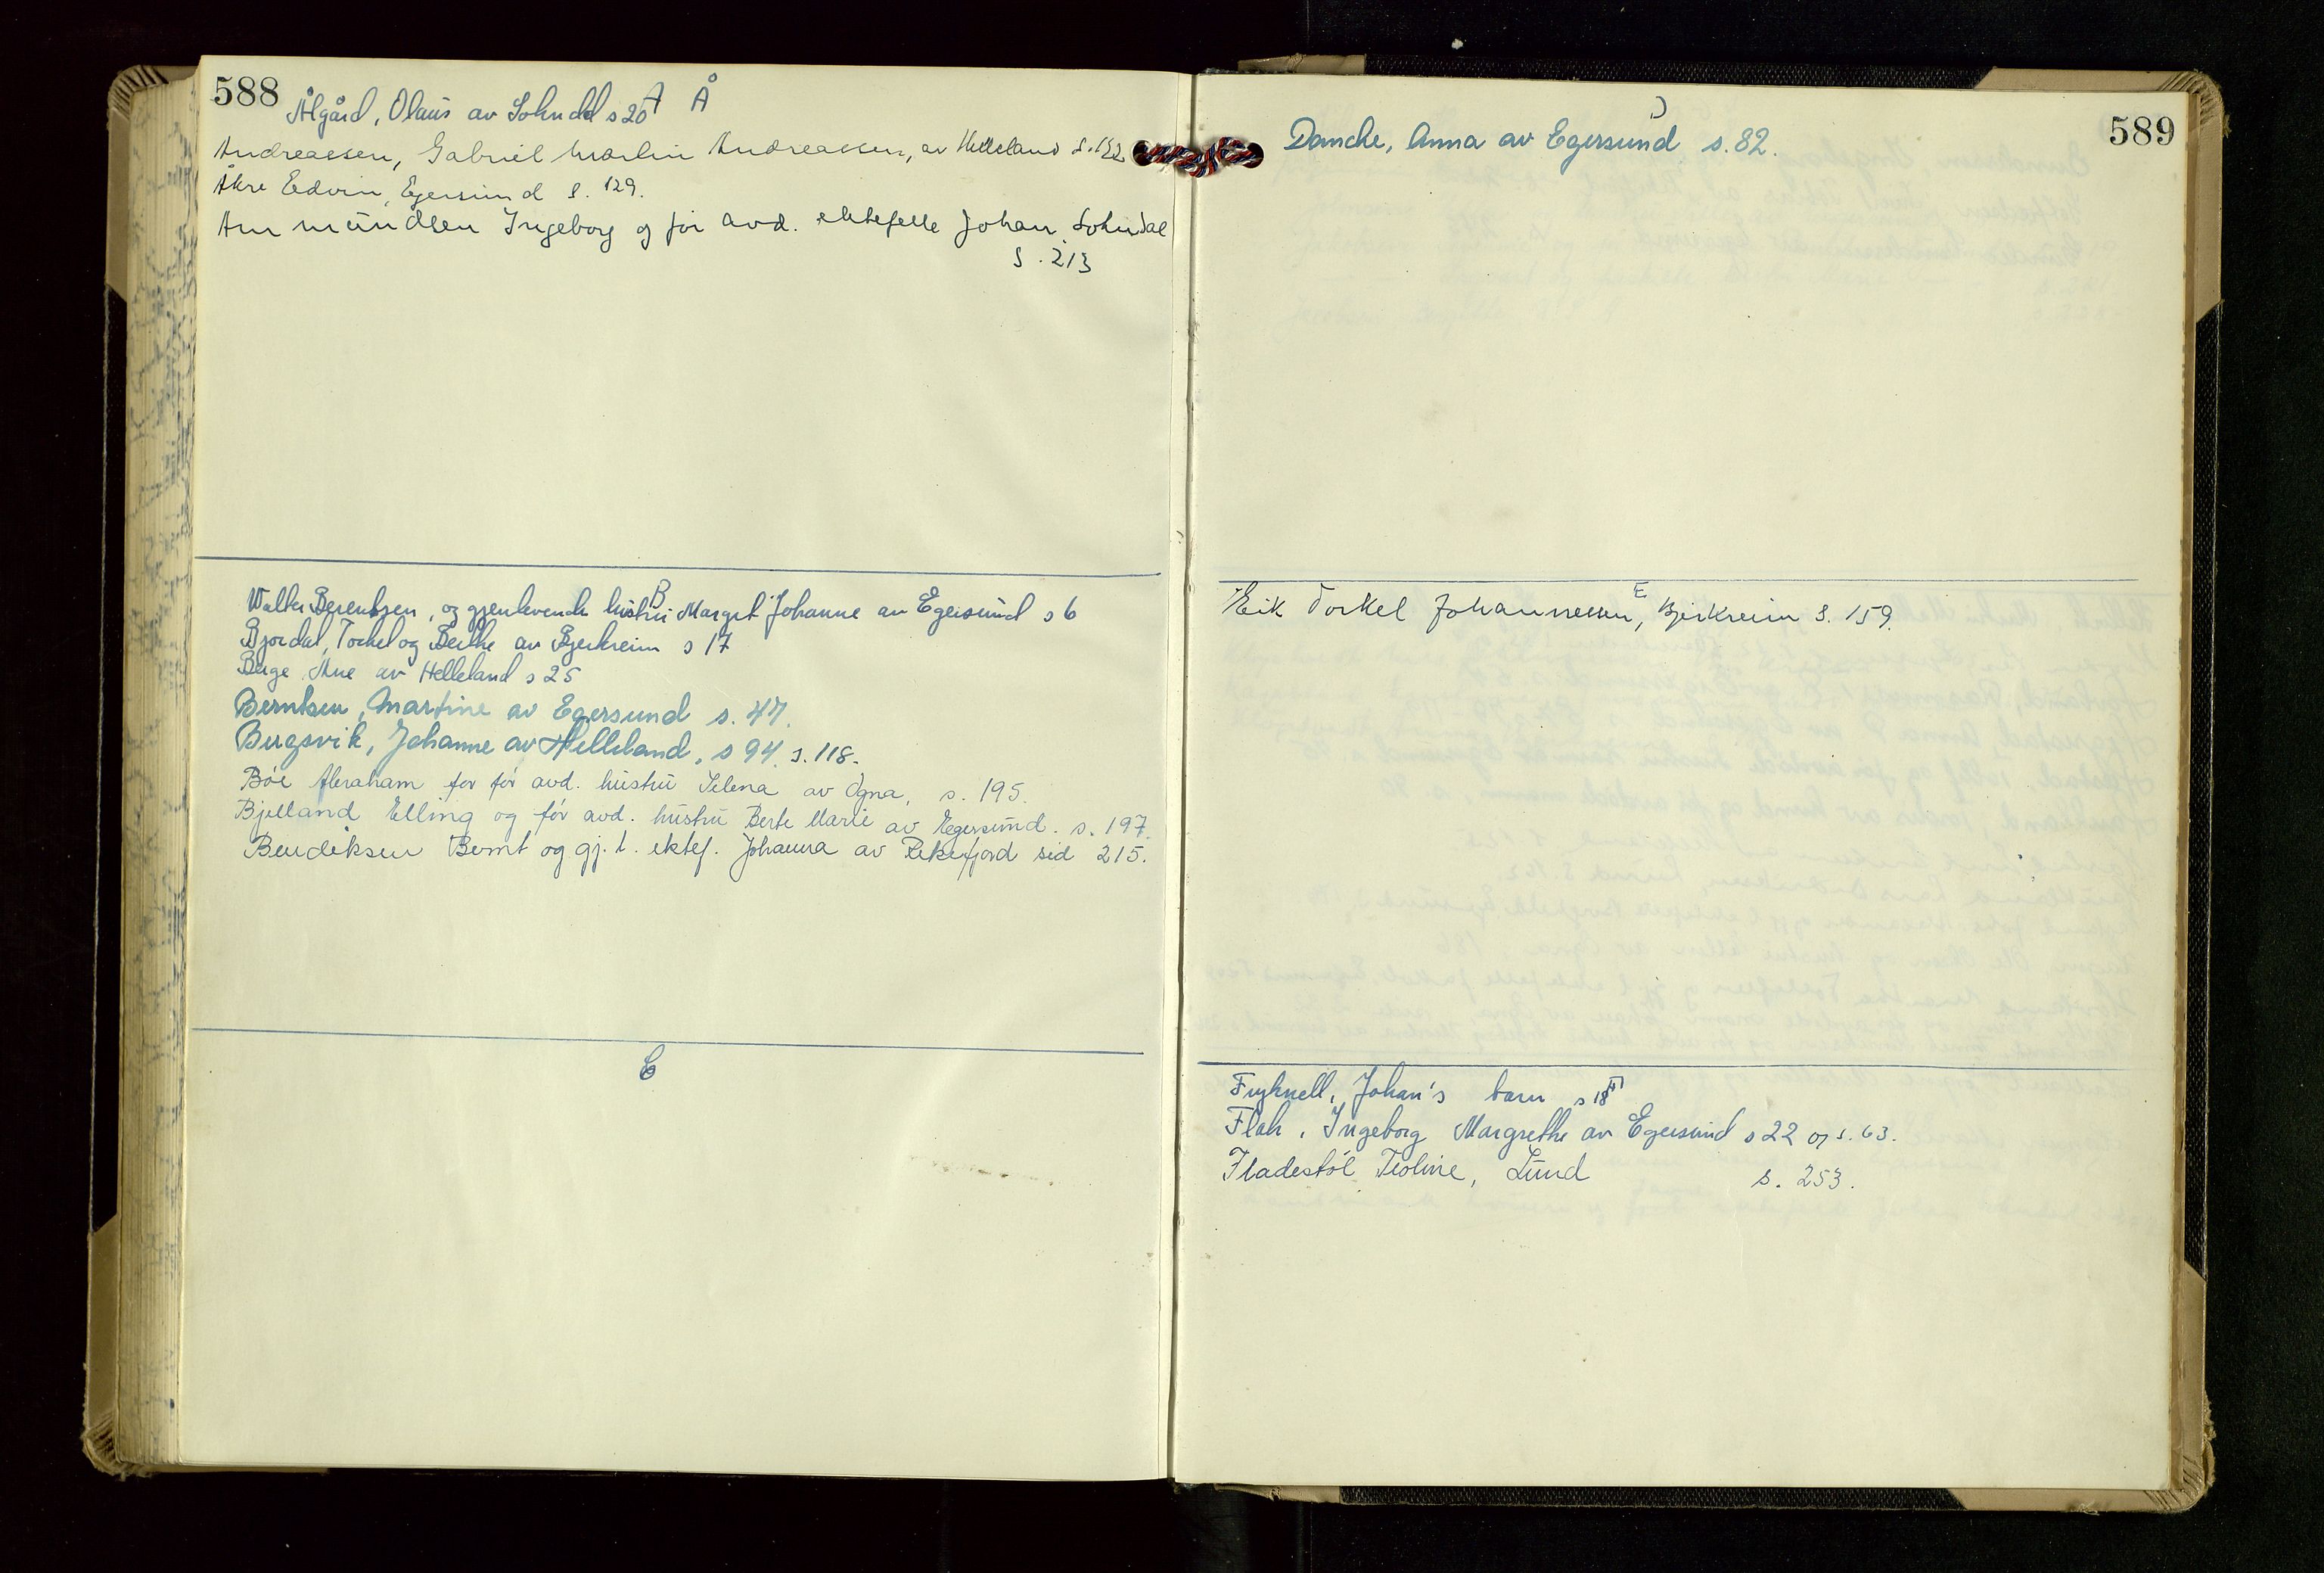 588
A Å
Ålgård, Olaus av Sokndal s 20
Andreassen, Gabriel Martin Andreassen, av Helleland s. 122
Åkre Edvin, Egersund s. 129.
Ammundsen Ingeborg og før avd. ektefelle Johan, Sokndal
s. 213
B
Walter Berentsen, og gjenlevende hustru Margit Johanne av Egersund s 6
Bjordal, Torkel og Berthe av Bjerkreim s 17
Berge Ane av Helleland s 25
Berntsen, Martine av Egersund s. 47.
Bergsvik, Johanne av Helleland, s 94. s. 118.
Böe Abraham for før avd. hustru Selena av Ogna, s. 195.
Bjelland Elling og før avd. hustru Berte Marie av Egersund. s. 197.
Bendiksen Bernt og gj. l. ektef. Johanna av Rekefjord sid 215.
C
589
D
Dancke, Anna av Egersund s. 82.
E
Eik Torkel Johannessen, Bjerkreim s. 159.
F
Johan's barn s 18
Flak, Ingeborg Margrethe av Egersund s 22 og s. 63.
Fladestöl Teoline, Lund s. 253.